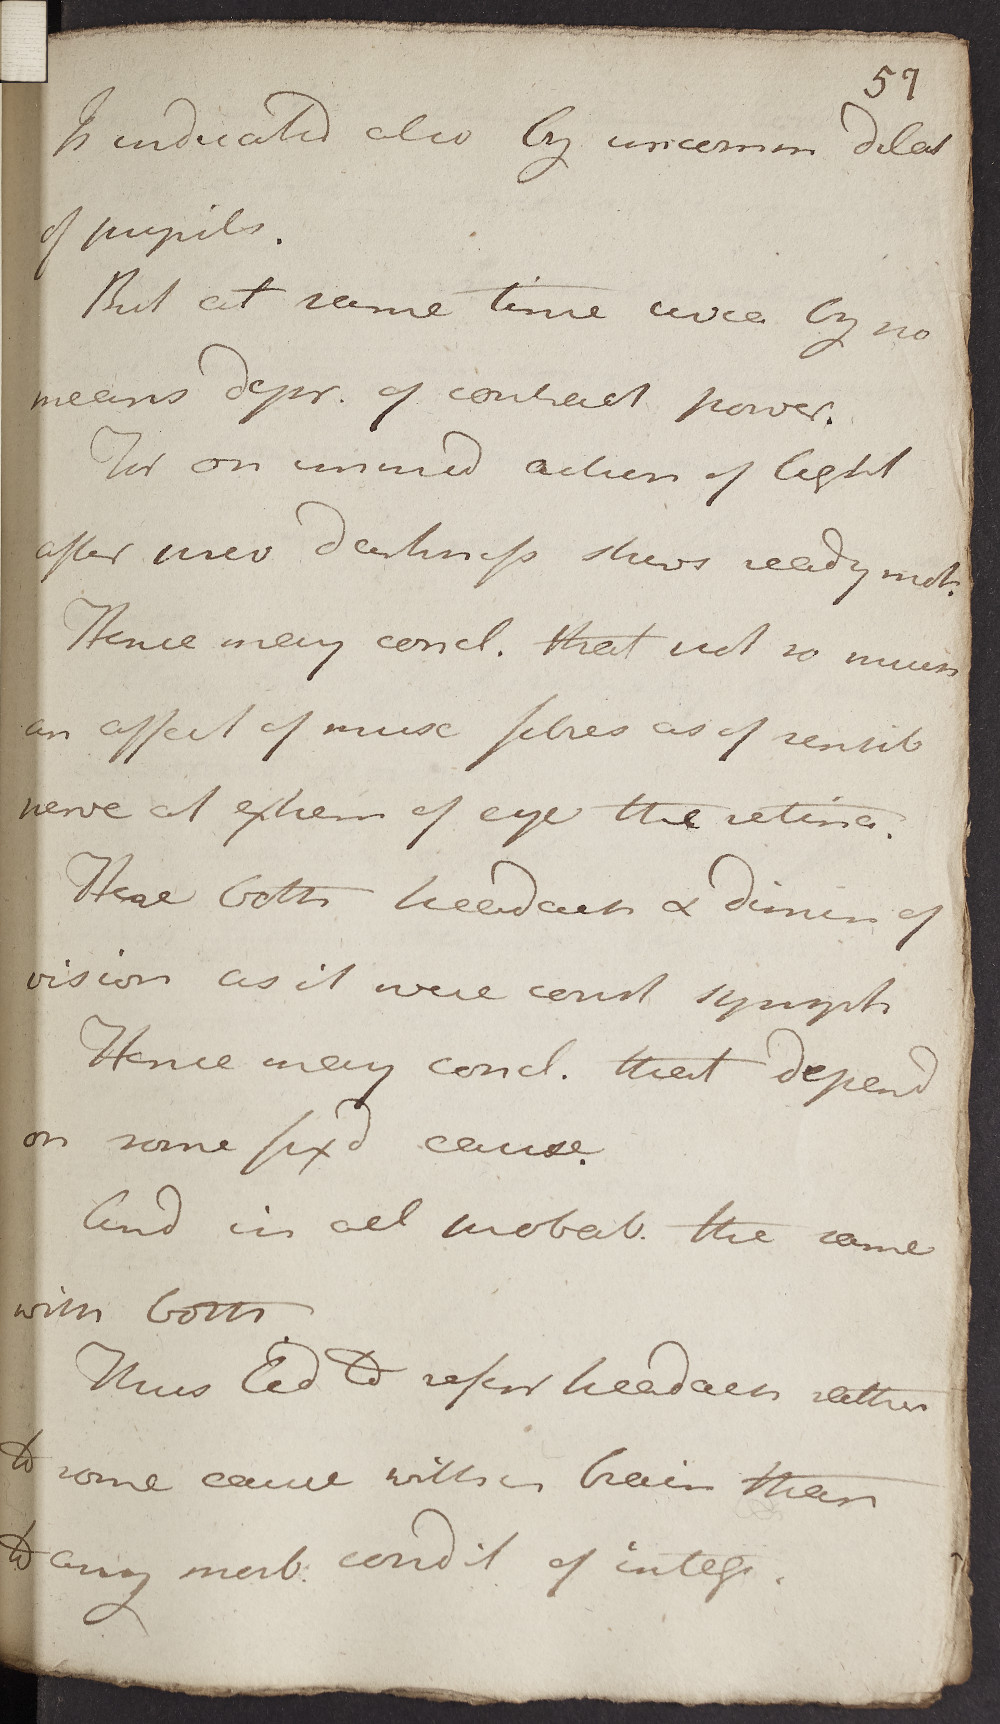 57
Is indicated also by uncommn dilat
of pupils.
But at same time uvea by no
means depr. of contract power.
For on immed action of light
after prev darkness shews ready mot.
Hence may concl. that not so much
an affect of musc fibres as of sentib
nerve at extrem of eye the retina.
Here both headach & dimin of
vision as it were const sympt
Hence may concl. that depend
on some fix'd cause.
And in all probab. the same
with both
Thus led to refer headach rather
to some cause within brain than
to any morb. condit of integs.